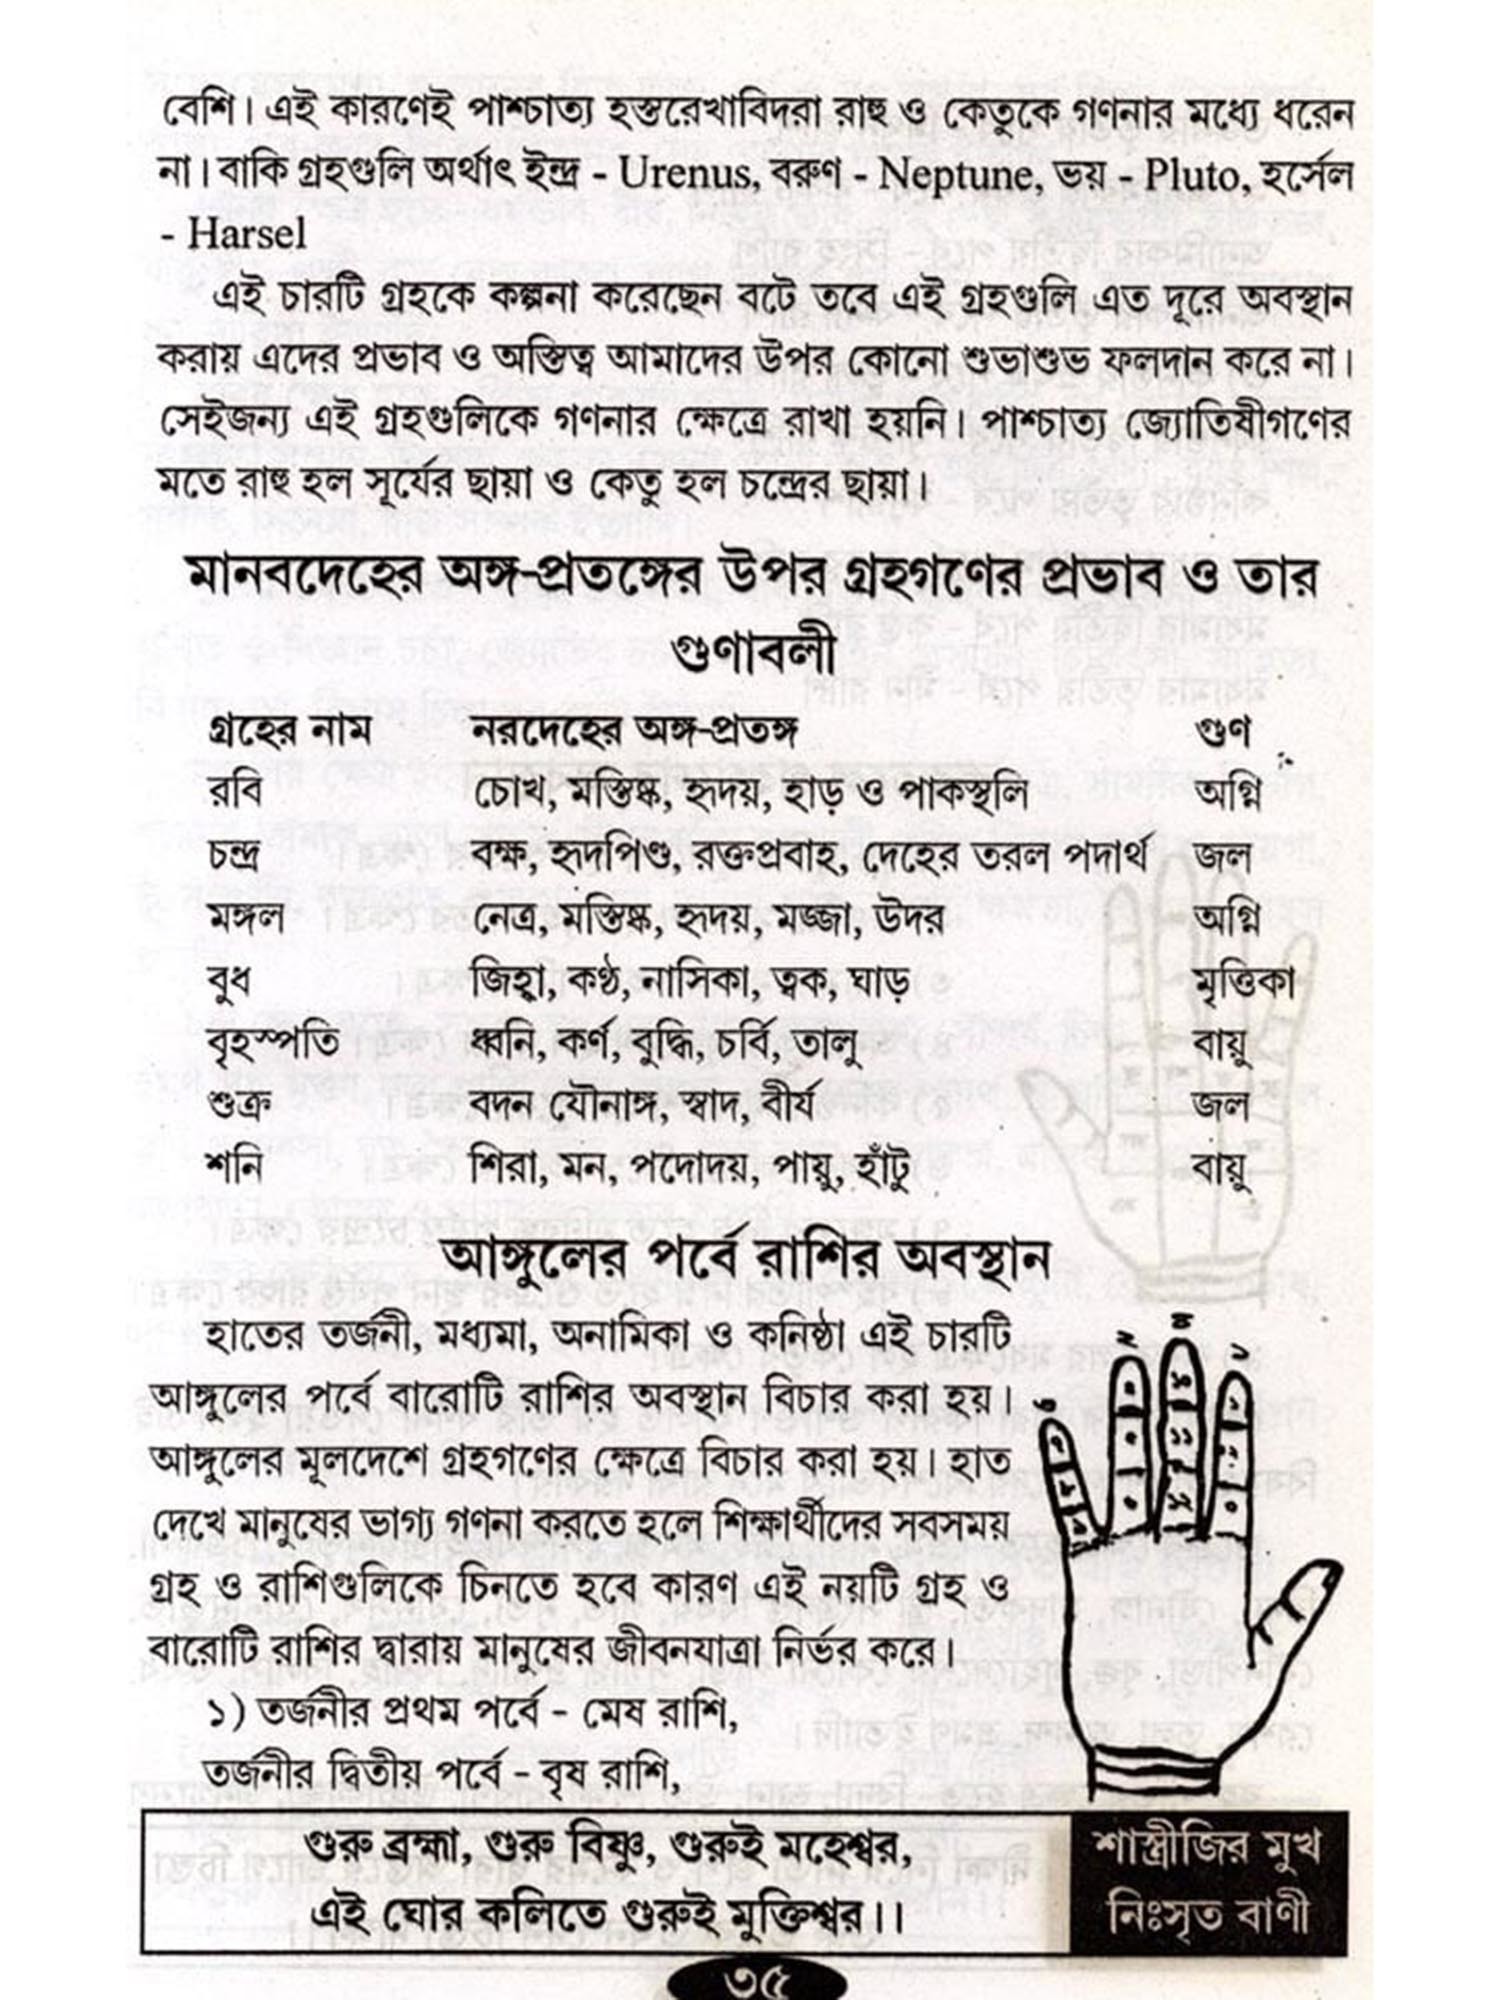 বেশি। এই কারণেই পাশ্চাত্য হস্তরেখাবিদরা রাহু ও কেতুকে গণনার মধ্যে ধরেন
না। বাকি গ্রহগুলি অর্থাৎ ইন্দ্র - Urenus, বরুণ - Neptune, ভয় - Pluto, হর্সেল
- Harsel
এই চারটি গ্রহকে কল্পনা করেছেন বটে তবে এই গ্রহগুলি এত দূরে অবস্থান
করায় এদের প্রভাব ও অস্তিত্ব আমাদের উপর কোনো শুভাশুভ ফলদান করে না।
সেইজন্য এই গ্রহগুলিকে গণনার ক্ষেত্রে রাখা হয়নি। পাশ্চাত্য জ্যোতিষীগণের
মতে রাহু হল সূর্যের ছায়া ও কেতু হল চন্দ্রের ছায়া।
মানবদেহের অঙ্গ-প্রতঙ্গের উপর গ্রহগণের প্রভাব ও তার
গুণাবলী
গ্রহের নাম নরদেহের অঙ্গ-প্রতঙ্গ গুণ
রবি চোখ, মস্তিষ্ক, হৃদয়, হাড় ও পাকস্থলি অগ্নি
চন্দ্র বক্ষ, হৃদপিণ্ড, রক্তপ্রবাহ, দেহের তরল পদার্থ জল
মঙ্গল নেত্র, মস্তিষ্ক, হৃদয়, মজ্জা, উদর অগ্নি
বুধ জিহ্বা, কণ্ঠ, নাসিকা, ত্বক, ঘাড় মৃত্তিকা
বৃহস্পতি ধ্বনি, কর্ণ, বুদ্ধি, চর্বি, তালু বায়ু
শুক্র বদন যৌনাঙ্গ, স্বাদ, বীর্য জল
শনি শিরা, মন, পদোদয়, পায়ু, হাঁটু বায়ু
আঙ্গুলের পর্বে রাশির অবস্থান
হাতের তর্জনী, মধ্যমা, অনামিকা ও কনিষ্ঠা এই চারটি
আঙ্গুলের পর্বে বারোটি রাশির অবস্থান বিচার করা হয়।
আঙ্গুলের মূলদেশে গ্রহগণের ক্ষেত্রে বিচার করা হয়। হাত
দেখে মানুষের ভাগ্য গণনা করতে হলে শিক্ষার্থীদের সবসময়
গ্রহ ও রাশিগুলিকে চিনতে হবে কারণ এই নয়টি গ্রহ ও
বারোটি রাশির দ্বারায় মানুষের জীবনযাত্রা নির্ভর করে।
১) তর্জনীর প্রথম পর্বে - মেষ রাশি,
তর্জনীর দ্বিতীয় পর্বে - বৃষ রাশি,
গুরু ব্রহ্মা, গুরু বিষ্ণু, গুরুই মহেশ্বর,
এই ঘোর কলিতে গুরুই মুক্তিশ্বর।।
শাস্ত্রীজির মুখ
নিঃসৃত বাণী
৩৫